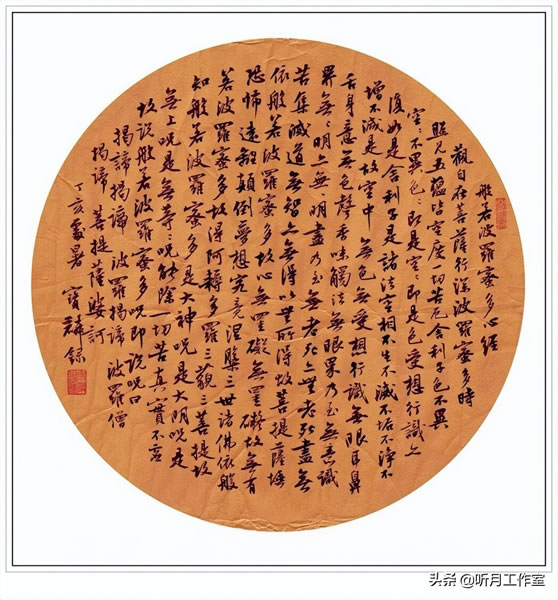 般若波羅蜜多心經
觀自在菩薩行深波羅蜜多時
照見五蘊皆空度一切苦厄舍利子色不異
空:不異色:即是空:即是色受想行識亦
復如是舍利子是諸法空相不生不滅不垢不淨不
增不減是故空中無色無受想行識無眼耳鼻
舌身意無色聲香味觸法無眼界乃至無意識
界無:明亦無:明盡乃至無老死亦無老死盡無
苦集滅道無智亦無得以無所得故菩提薩埵
依般若波羅蜜多故心無罣礙無罣礙故無有
恐怖遠離顛倒夢想究竟涅槃三世諸佛依般
若波羅蜜多故得阿耨多羅三藐三菩提故
知般若波羅蜜多是大神咒是大明咒是
無上咒是無等咒能除一切苦真實不虛
故說般若波羅蜜多咒即說咒曰
揭諦揭諦 波羅揭諦 波羅僧
揭諦 菩提薩婆訶
丁亥處暑 寶麟錄
头条 @听月工作室